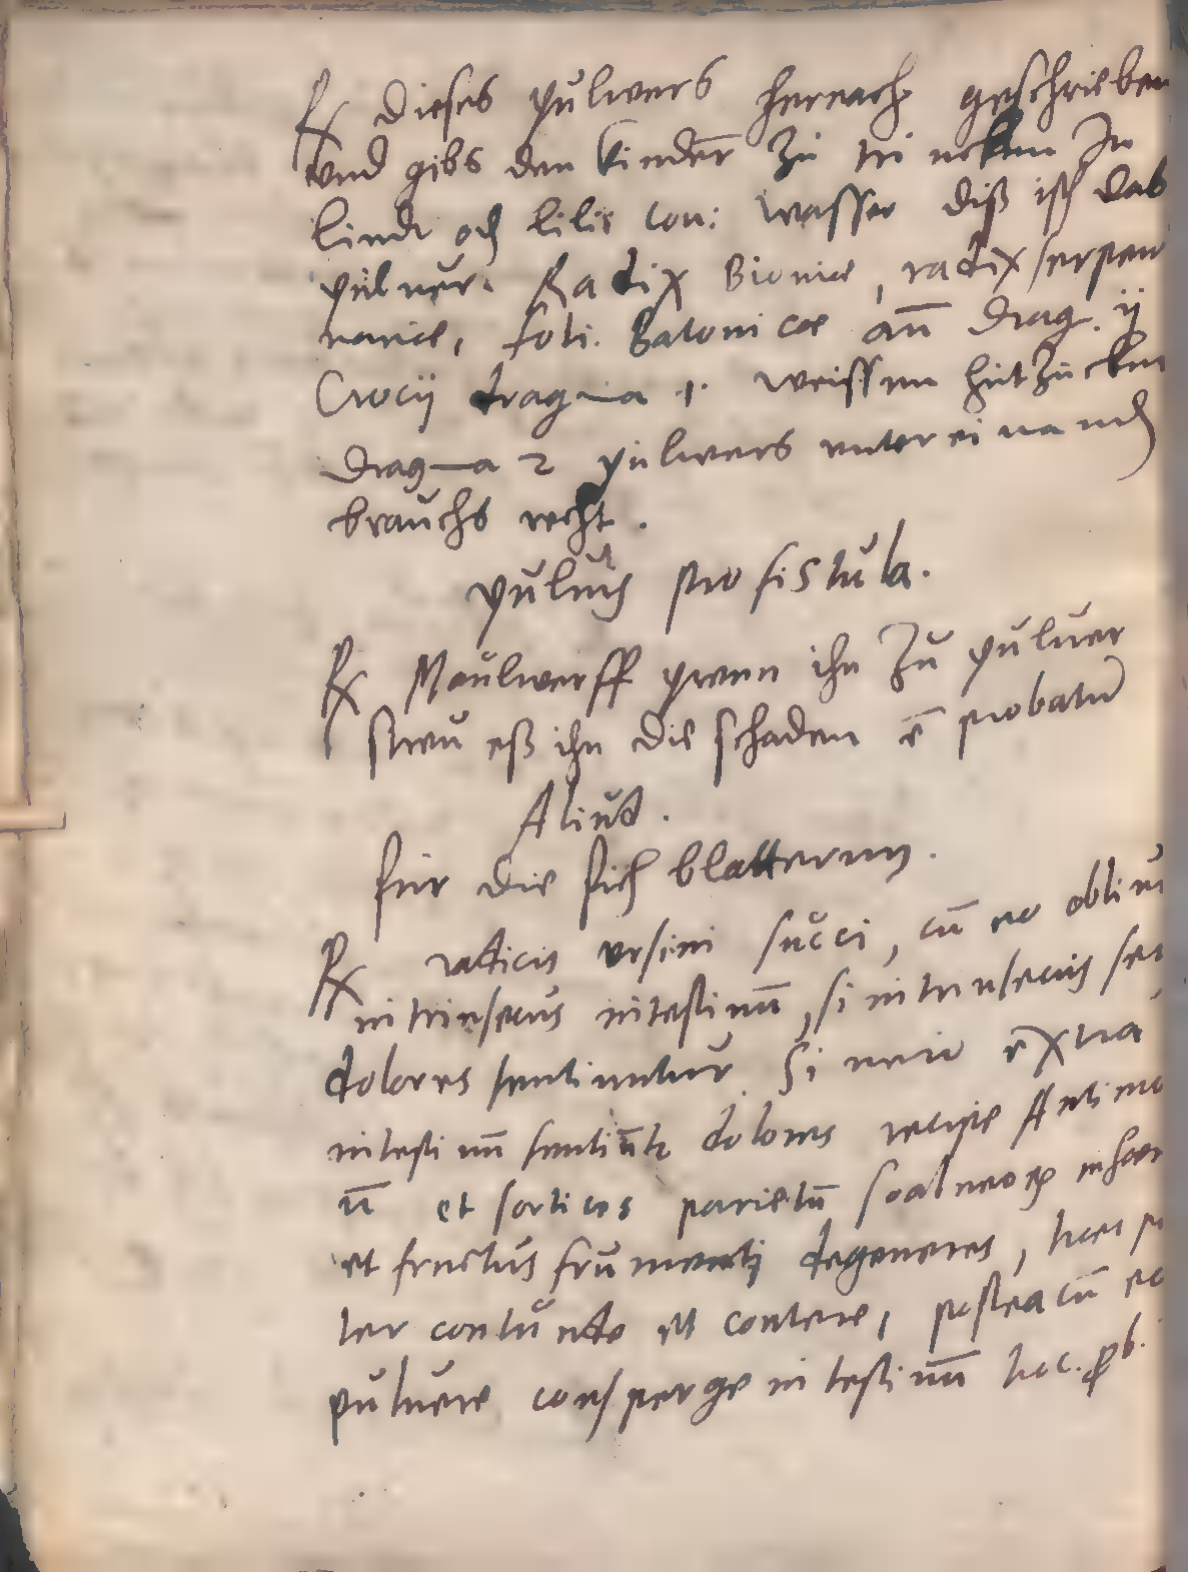 ℞ dieses pulvers hernach geschrieben
vnd gibs den kindern̄ zu trincken In
lindt od lilie con: wasser diß ist das
pulver. Radix Bionice, radix serpen
narice, foli. Batonicæ an̄ drag. ij
Crocij dragma 1. weissen hutzucken
dragma 2 pulvers vntereinand
brauchs recht.
pulvis pro fistula.
℞ Maulwerff prenn ihn zu pulver
streu eß ihn die schaden ē probatū
Aliud.
für die blatternn.
℞ radicis ursini succi, cū eo
intrinsecus intestinū, si intrinsecus
dolores sentiuntur Si vero extra
intestinū dolores recipe Antimo
et parietū
et fructus frumenti degeneres,
ter contundo et contere, postea cū eo
pulvere consperge intestinū hoc. pb.